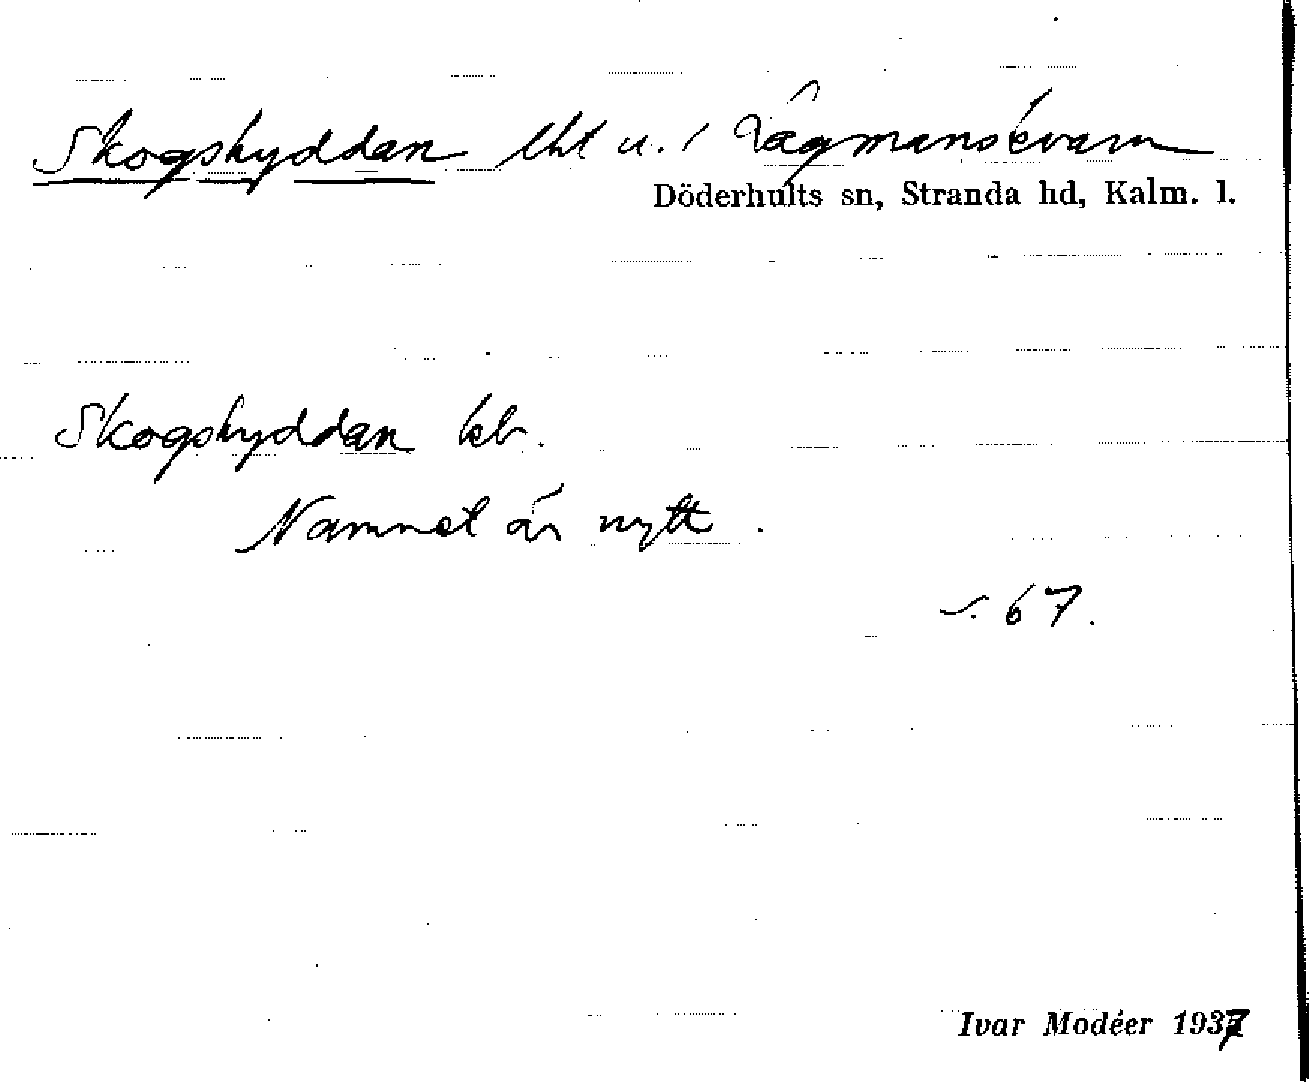 Skogshyddan lht u. / Lågmanskvarn
Döderhults sn, Stranda hd, Kalm. l.
Skogshyddan kb.
Namnet är nytt.
s. 67.
Ivar Modéer 1937